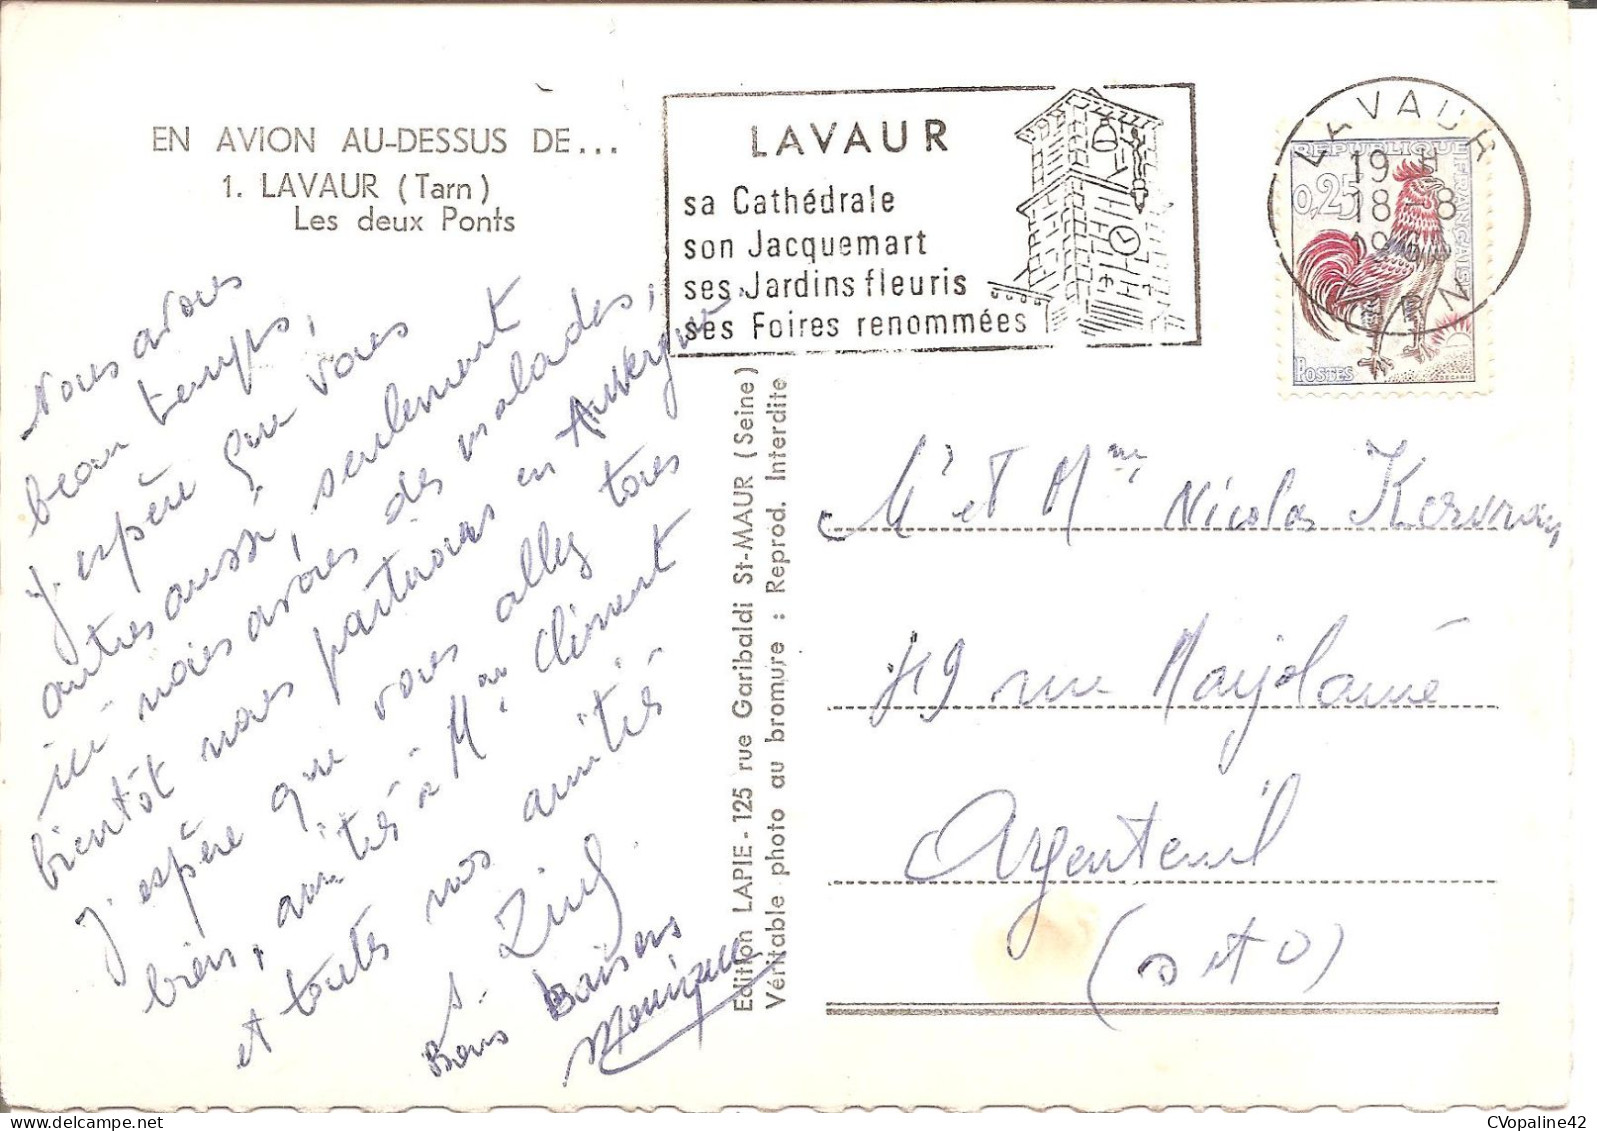 EN AVION AU-DESSUS DE...
1. LAVAUR (Tarn)
Les deux Ponts
LAVAUR
sa Cathédrale
son Jacquemart
ses Jardins fleuris
ses Foires renommées
LAVAUR
19 H
18-8
TARN
REPUBLIQUE FRANÇAISE
0,25
POSTES
DECARIS
Nous avons
beau temps,
j'espère que vous
autres aussi, seulement
ici nous avons des malades,
bientôt nous partirons en Auvergne.
J'espère que vous allez tous
bien, amitiés à Mme Clément
et toutes nos amitiés
Bons Baisers
Monique
Edition LAPIE - 125 rue Garibaldi St-MAUR (Seine)
Véritable photo au bromure : Reprod. Interdite
Mr et Mme Nicolas Kervran
49 rue Marjolaine
Argenteuil
(S et O)
CVopaline42